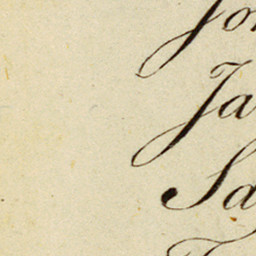 Jo
Ja
Sa